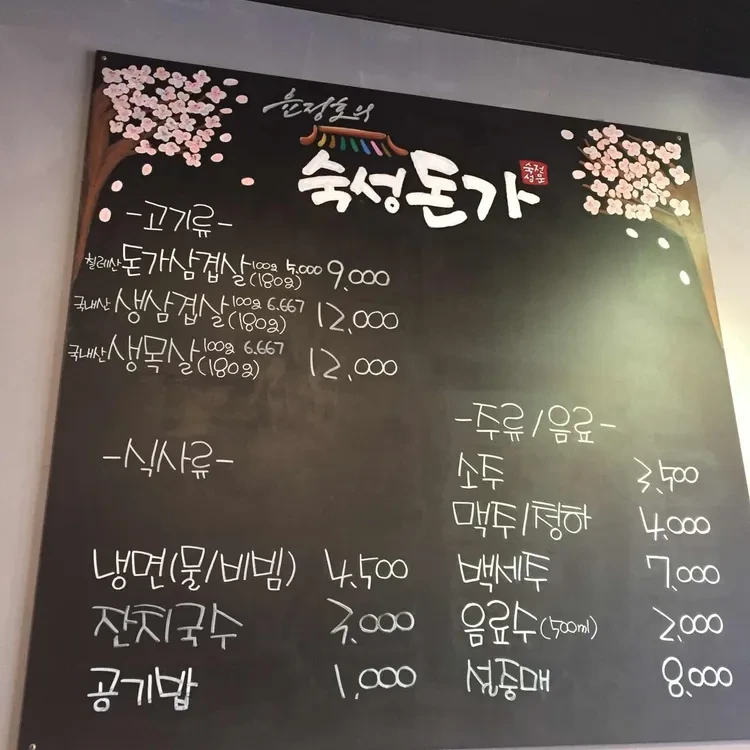 윤정호의
숙성돈가
숙성전문
-고기류-
칠레산 돈가삼겹살 100g 5,000 (180g) 9,000
국내산 생삼겹살 100g 6.667 (180g) 12,000
국내산 생목살 100g 6.667 (180g) 12,000
-식사류-
냉면(물/비빔) 4,500
잔치국수 3,000
공기밥 1,000
-주류/음료-
소주 3,500
맥주/청하 4,000
백세주 7,000
음료수(500ml) 2,000
설중매 8,000